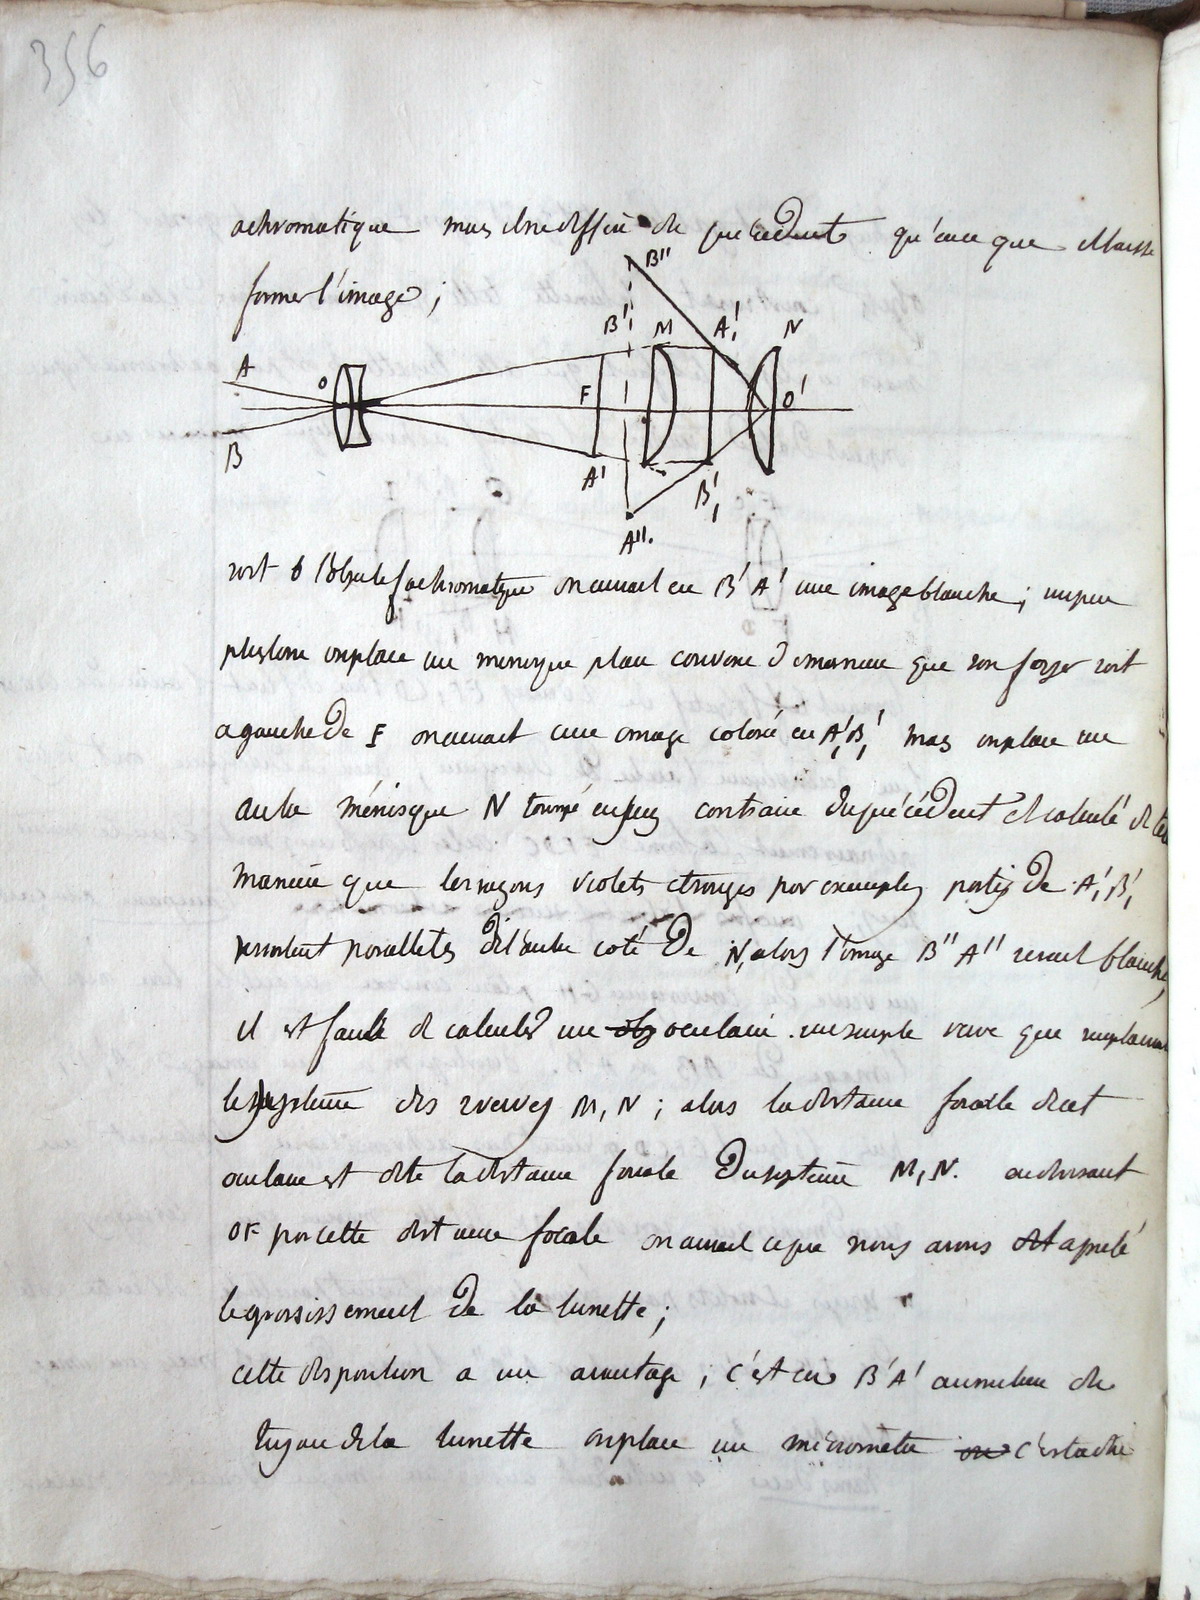 356
achromatique mais il ne diffère du précédent qu'en ce que il laisse
former l'image ;
B''
B' M A'₁ N
A O F O'
B A' B'₁
A''.
soit o l'objectif achromatique on aurait en B'A' une image blanche ; un peu
plus loin on place un ménisque plan convexe de maniere que son foyer soit
a gauche de F on aurait une image colorée en A'₁B'₁ mais on place un
autre ménisque N tourné en sens contraire du précédent et calculé de telle
maniere que les rayons violets et rouges par exemples partis de A'₁B'₁
sortent paralleles de l'autre coté de N, alors l'image B''A'' serait blanche,
il est facile de calculer un obj oculaire un simple verre que remplacerait
le systeme des 2 verres M, N ; alors la distance focale de cet
oculaire est dite la distance focale du systeme M, N. en divisant
OF par cette distance focale on aurait ce que nous avons dit appelé
le grossissement de la lunette ;
cette disposition a un avantage ; c'est en B'A' au milieu du
tuyau de la lunette on place un micromètre ou c'est a dire